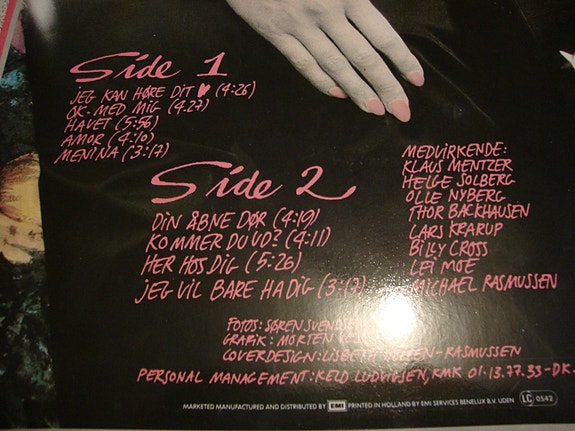 Side 1
JEG KAN HØRE DIT ♥ (4:26)
OK. MED MIG (4.27)
HAVET (5:56)
AMOR (4:10)
MENINA (3:17)
Side 2
DIN ÅBNE DØR (4:19)
KOMMER DU UD? (4:11)
HER HOS DIG (5:26)
JEG VIL BARE HA DIG (3:17)
MEDVIRKENDE:
KLAUS MENTZER
HELGE SOLBERG
OLLE NYBERG
THOR BACKHAUSEN
LARS KRARUP
BILLY CROSS
LEI MOE
MICHAEL RASMUSSEN
FOTOS: SØREN SVENDSEN
GRAFIK: MORTEN
COVERDESIGN: LISBETH -RASMUSSEN
PERSONAL MANAGEMENT: KELD LUDVIGSEN, RMK 01-13.77.33-DK.
MARKETED MANUFACTURED AND DISTRIBUTED BY EMI PRINTED IN HOLLAND BY EMI SERVICES BENELUX B.V. UDEN LC 0542